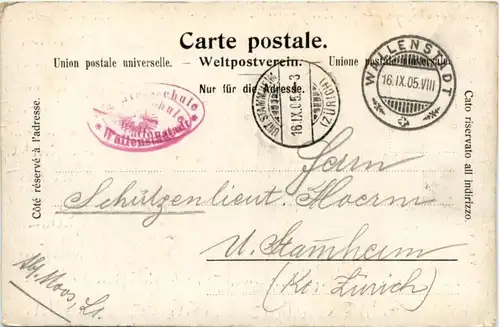 Carte postale.
Union postale universelle. — Weltpostverein. — Unione postale universale.
Nur für die Adresse.
WALLENSTADT
16.IX.05.VIII
UNT. STAMMHEIM
16.IX.05.-3
(ZÜRICH)
Wallenstadt
Côté réservé à l'adresse.
Cato riservato all indirizzo.
Herrn
Schützenlieut.
U. Stamheim
(Kt. Zürich)
Moos, Lt.